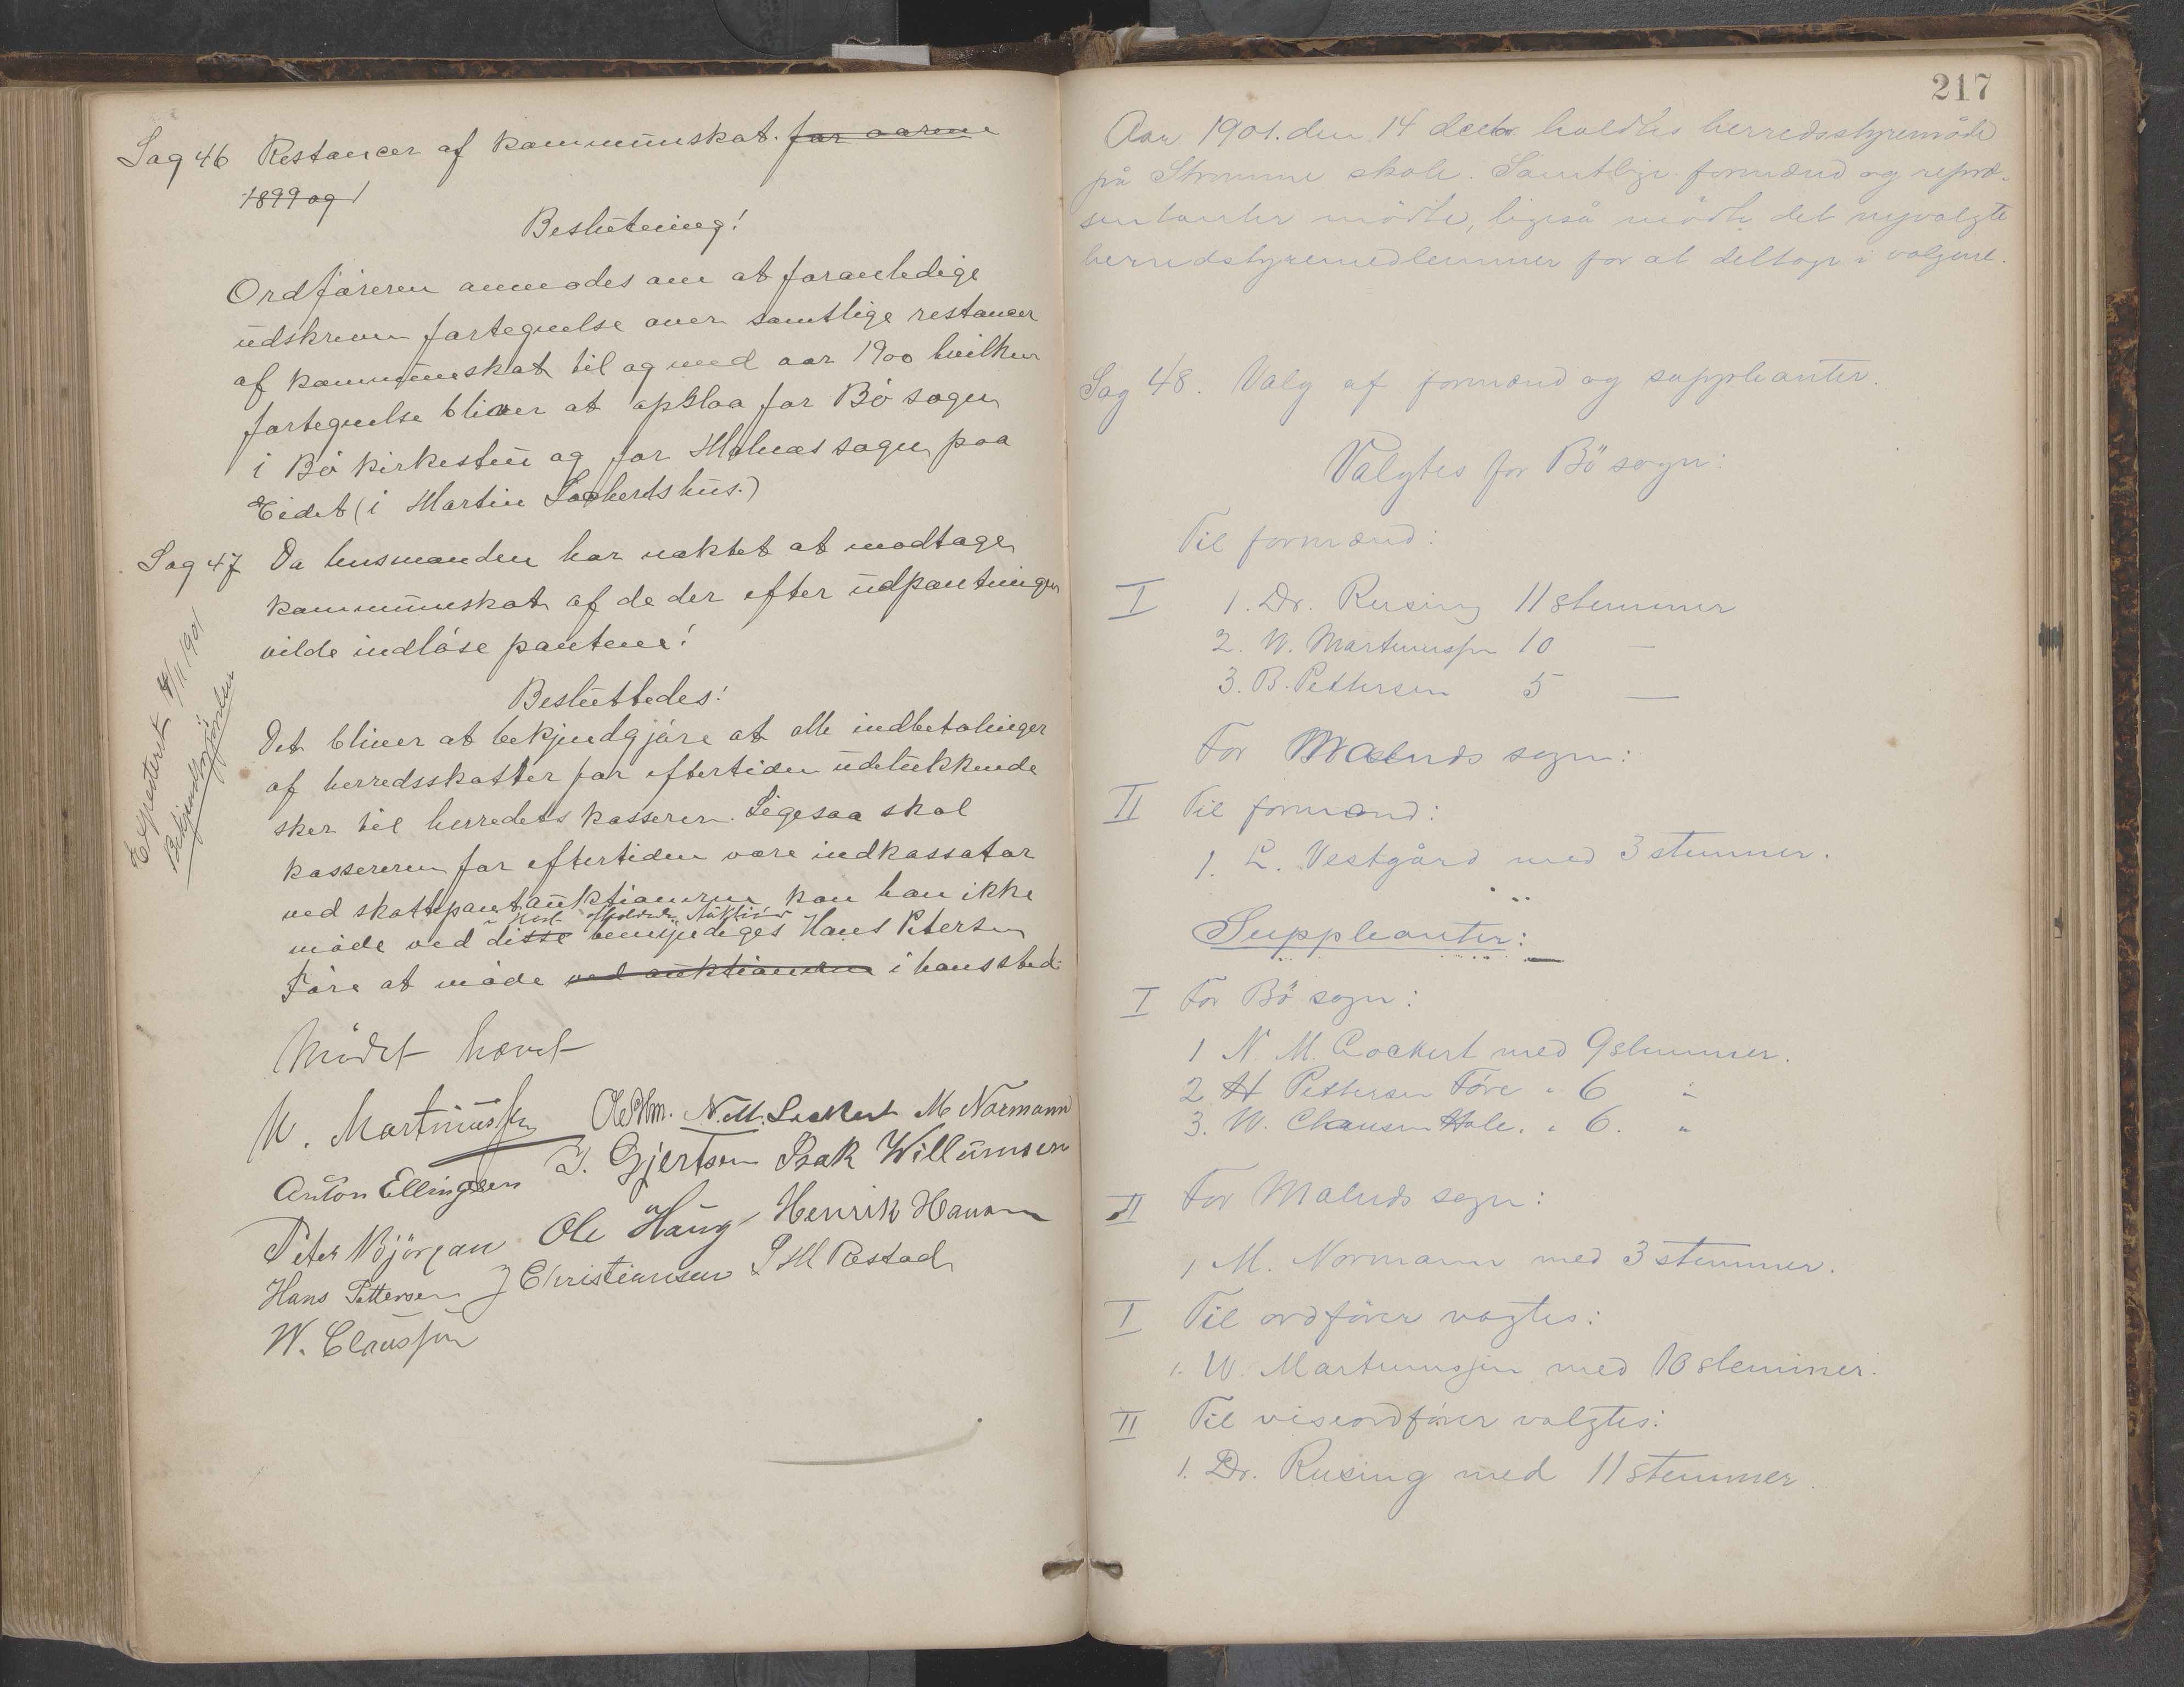 Sag 46 Restancer af kommunskat. for aarene
1899 og
Beslutning!
Ordføreren anmodes om at foranledige
udskreven fortegnelse over samtlige restancer
af kommunskat til og med aar 1900 hvilken
fortegnelse bliver at opslaa for Bø sogn
i Bø kirkestue og for Malnæs sogn paa
Eidet (i Martin Lockerts hus.)
Sag 47 Da lensmanden har nægtet at modtage
kommunskat af de der efter udpantningen
vilde indløse pantene!
Besluttedes:
Det bliver at bekjendgjøre at alle indbetalinger
af herredsskatter for eftertiden udelukkende
sker til herredets kasserer. Ligesaa skal
kassereren for eftertiden være indkassator
ved skattepantauktionerne kan han ikke
møde ved disse bemyndiges Hans Petersen
Føre at møde ved auktionerne i hans sted.
Expederet 4/11 1901
Bekjendtgjørelsen
Mødet hævet
W. Martinussen N. M. Lockert M Normann
Anton Ellingsen I. Gjertsen Isak Willumsen
Peter Bjørgan Ole Haug Henrik Hansen
Hans Pettersen J Christiansen P M Røstad
W. Claussen
217
Aar 1901. den 14 decbr. holdtes herredsstyremøde
på Strømme skole. Samtlige formænd og repræ-
sentanter mødte, ligeså mødte det nyvalgte
herredstyremedlemmer for at deltage i valgene.
Sag 48. Valg af formænd og suppleanter.
Valgtes for Bö sogn:
Til formænd:
I 1. Dr. Rusing 11 stemmer
2. W. Martinussen 10 —
3. B. Pettersen 5 —
For Malnæs sogn:
II Til formænd:
1. L. Vestgård med 3 stemmer.
Suppleanter:
I For Bö sogn:
1 N. M. Lockert med 9 stemmer.
2 H Pettersen Före " 6 "
3. W. Clausen Hole. " 6. "
II For Malnæs sogn:
1 M. Normann med 3 stemmer.
I Til ordförer valgtes:
1. W. Martinussen med 10 stemmer.
II Til viseordförer valgtes:
1. Dr. Rusing med 11 stemmer.